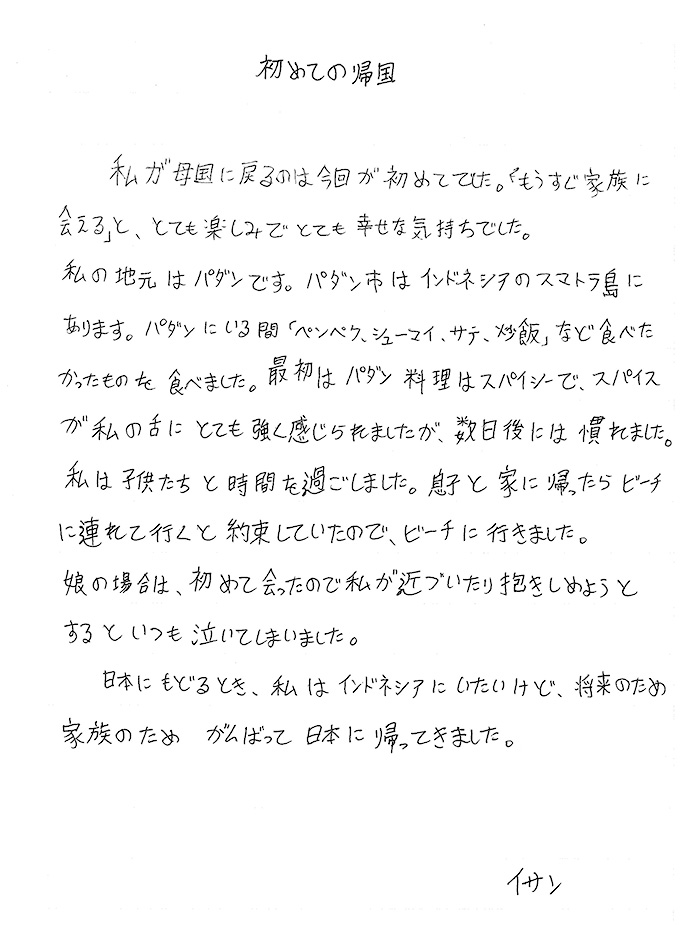 初めての帰国
私が母国に戻るのは今回が初めてでした。「もうすぐ家族に
会える」と、とても楽しみでとても幸せな気持ちでした。
私の地元はパダンです。パダン市はインドネシアのスマトラ島に
あります。パダンにいる間「ペンペク、シューマイ、サテ、炒飯」など食べた
かったものを食べました。最初はパダン料理はスパイシーで、スパイス
が私の舌にとても強く感じられましたが、数日後には慣れました。
私は子供たちと時間を過ごしました。息子と家に帰ったらビーチ
に連れて行くと約束していたので、ビーチに行きました。
娘の場合は、初めて会ったので私が近づいたり抱きしめようと
するといつも泣いてしまいました。
日本にもどるとき、私はインドネシアにいたいけど、将来のため
家族のため がんばって日本に帰ってきました。
イサン